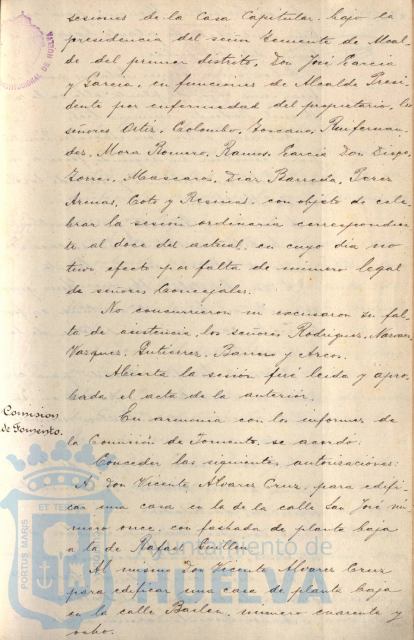 sesiones de la Casa Capitular bajo la
presidencia del señor Teniente de Alcal-
de del primer distrito, Don José García
y García, en funciones de Alcalde Presi-
dente por enfermedad del propietario, los
señores Ortiz, Colombo, Toscano, 
Mora Romero, Ramos, García Don Diego,
Torres, Mascarós, Díaz Barreda, Perez
Arenas, Coto y Resina, con objeto de cele-
brar la sesión ordinaria correspondien-
te al doce del actual, en cuyo día no
tuvo efecto por falta de número legal
de señores Concejales.
No concurrieron ni excusaron su fal-
ta de asistencia, los señores Rodriguez,
Vazquez, Gutierrez, Barrero y Arcos.
Abierta la sesión fué leida y apro-
bada el acta de la anterior.
Comision
de Fomento.
En armonia con los informes de
la Comisión de Fomento, se acordó:
Conceder las siguientes autorizaciones:
A Don Vicente Alvarez Cruz, para edifi-
car una casa en la de la calle San José nú-
mero once, con fachada de planta baja
a la de Rafael Guillen.
Al mismo Don Vicente Alvarez Cruz
para edificar una casa de planta baja
en la calle Bailen, número cuarenta y
ocho.
PORTUS MARIS
ET TER
Ayuntamiento de
HUELVA
DE HUELVA